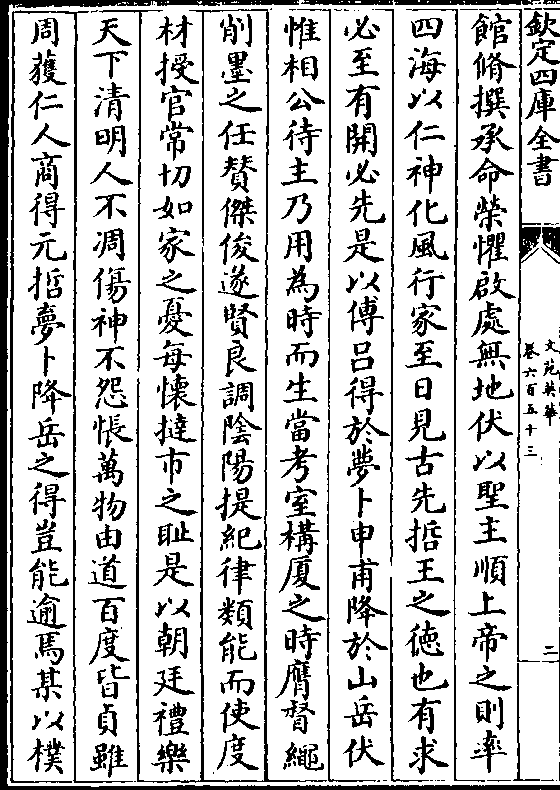 欽定四庫全書
文苑英華
卷六百五十三
二
館脩撰承命榮懼啟處無地伏以聖主順上帝之則率
四海以仁神化風行家至日見古先哲王之徳也有求
必至有開必先是以傅吕得於夢卜申甫降於山岳伏
惟相公待主乃用為時而生當考室構厦之時膺督繩
削墨之任賛傑俊遂賢良調陰陽提紀律類能而使度
材授官常切如家之憂每懐撻市之耻是以朝廷禮樂
天下清明人不凋傷神不怨悵萬物由道百度皆貞雖
周獲仁人商得元哲夢卜降岳之得豈能逾焉某以樸